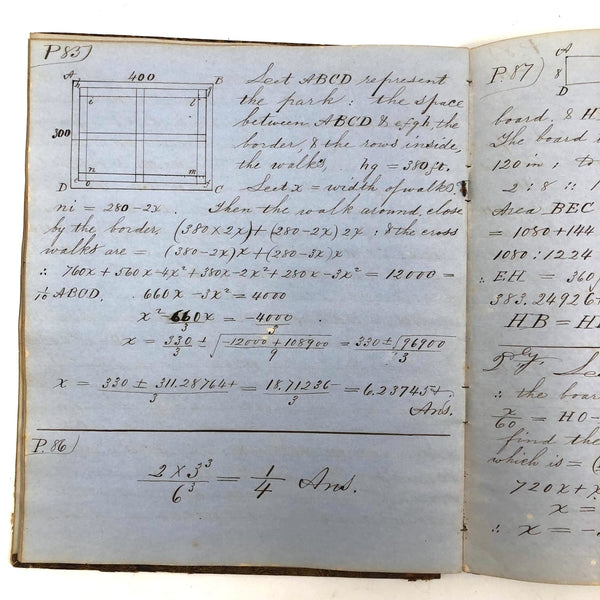 P.85
A 400 B
300
h
i l
n m
o
D C
Leet ABCD represent
the park: the space
between ABCD & efgh, the
border, & the rows inside,
the walks, hg = 380 ft.
Leet x = width of walks
ni = 280 - 2x. Then the walk around, close
by the border, (380 × 2x) + (280 - 2x) 2x ; & the cross
walks are = (380 - 2x)x + (280 - 3x)x
∴ 760x + 560x - 4x² + 380x - 2x² + 280x - 3x² = 12000 =
1/10 ABCD. 660x - 3x² = 4000
x² - 660x/3 = -4000/3
x = 330/3 ± √(-12000 + 108900)/9 = 330 ± √96900/3
x = 330 ± 311.28764+/3 = 18.71236/3 = 6.23745+.
Ans.
P.86
2 × 3³/6³ = 1/4 Ans.
P.87
A
8
D
board. & H
The board i
120 in ;
2 : 8 ::
Area BEC
= 1080 + 144
1080 : 1224
∴ EH = 360
383.24926+
HB = H
∴ the boar
x/60 = HO
find the
which is = (
720x + x
x =
∴ x = -